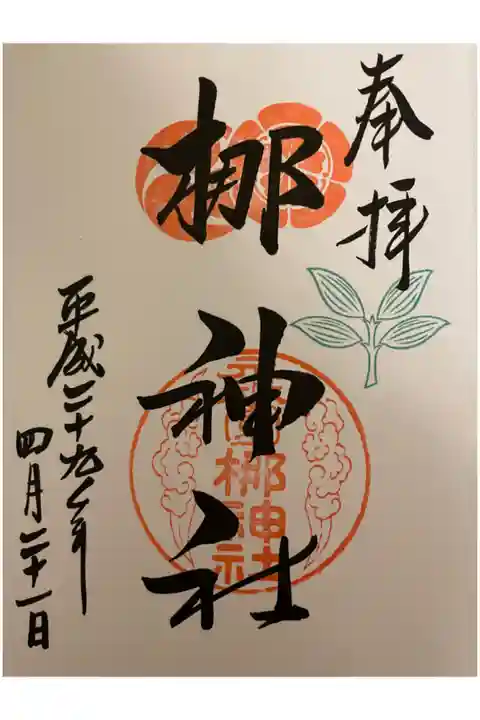 奉拝
梛神社
平成二十九年
四月二十一日